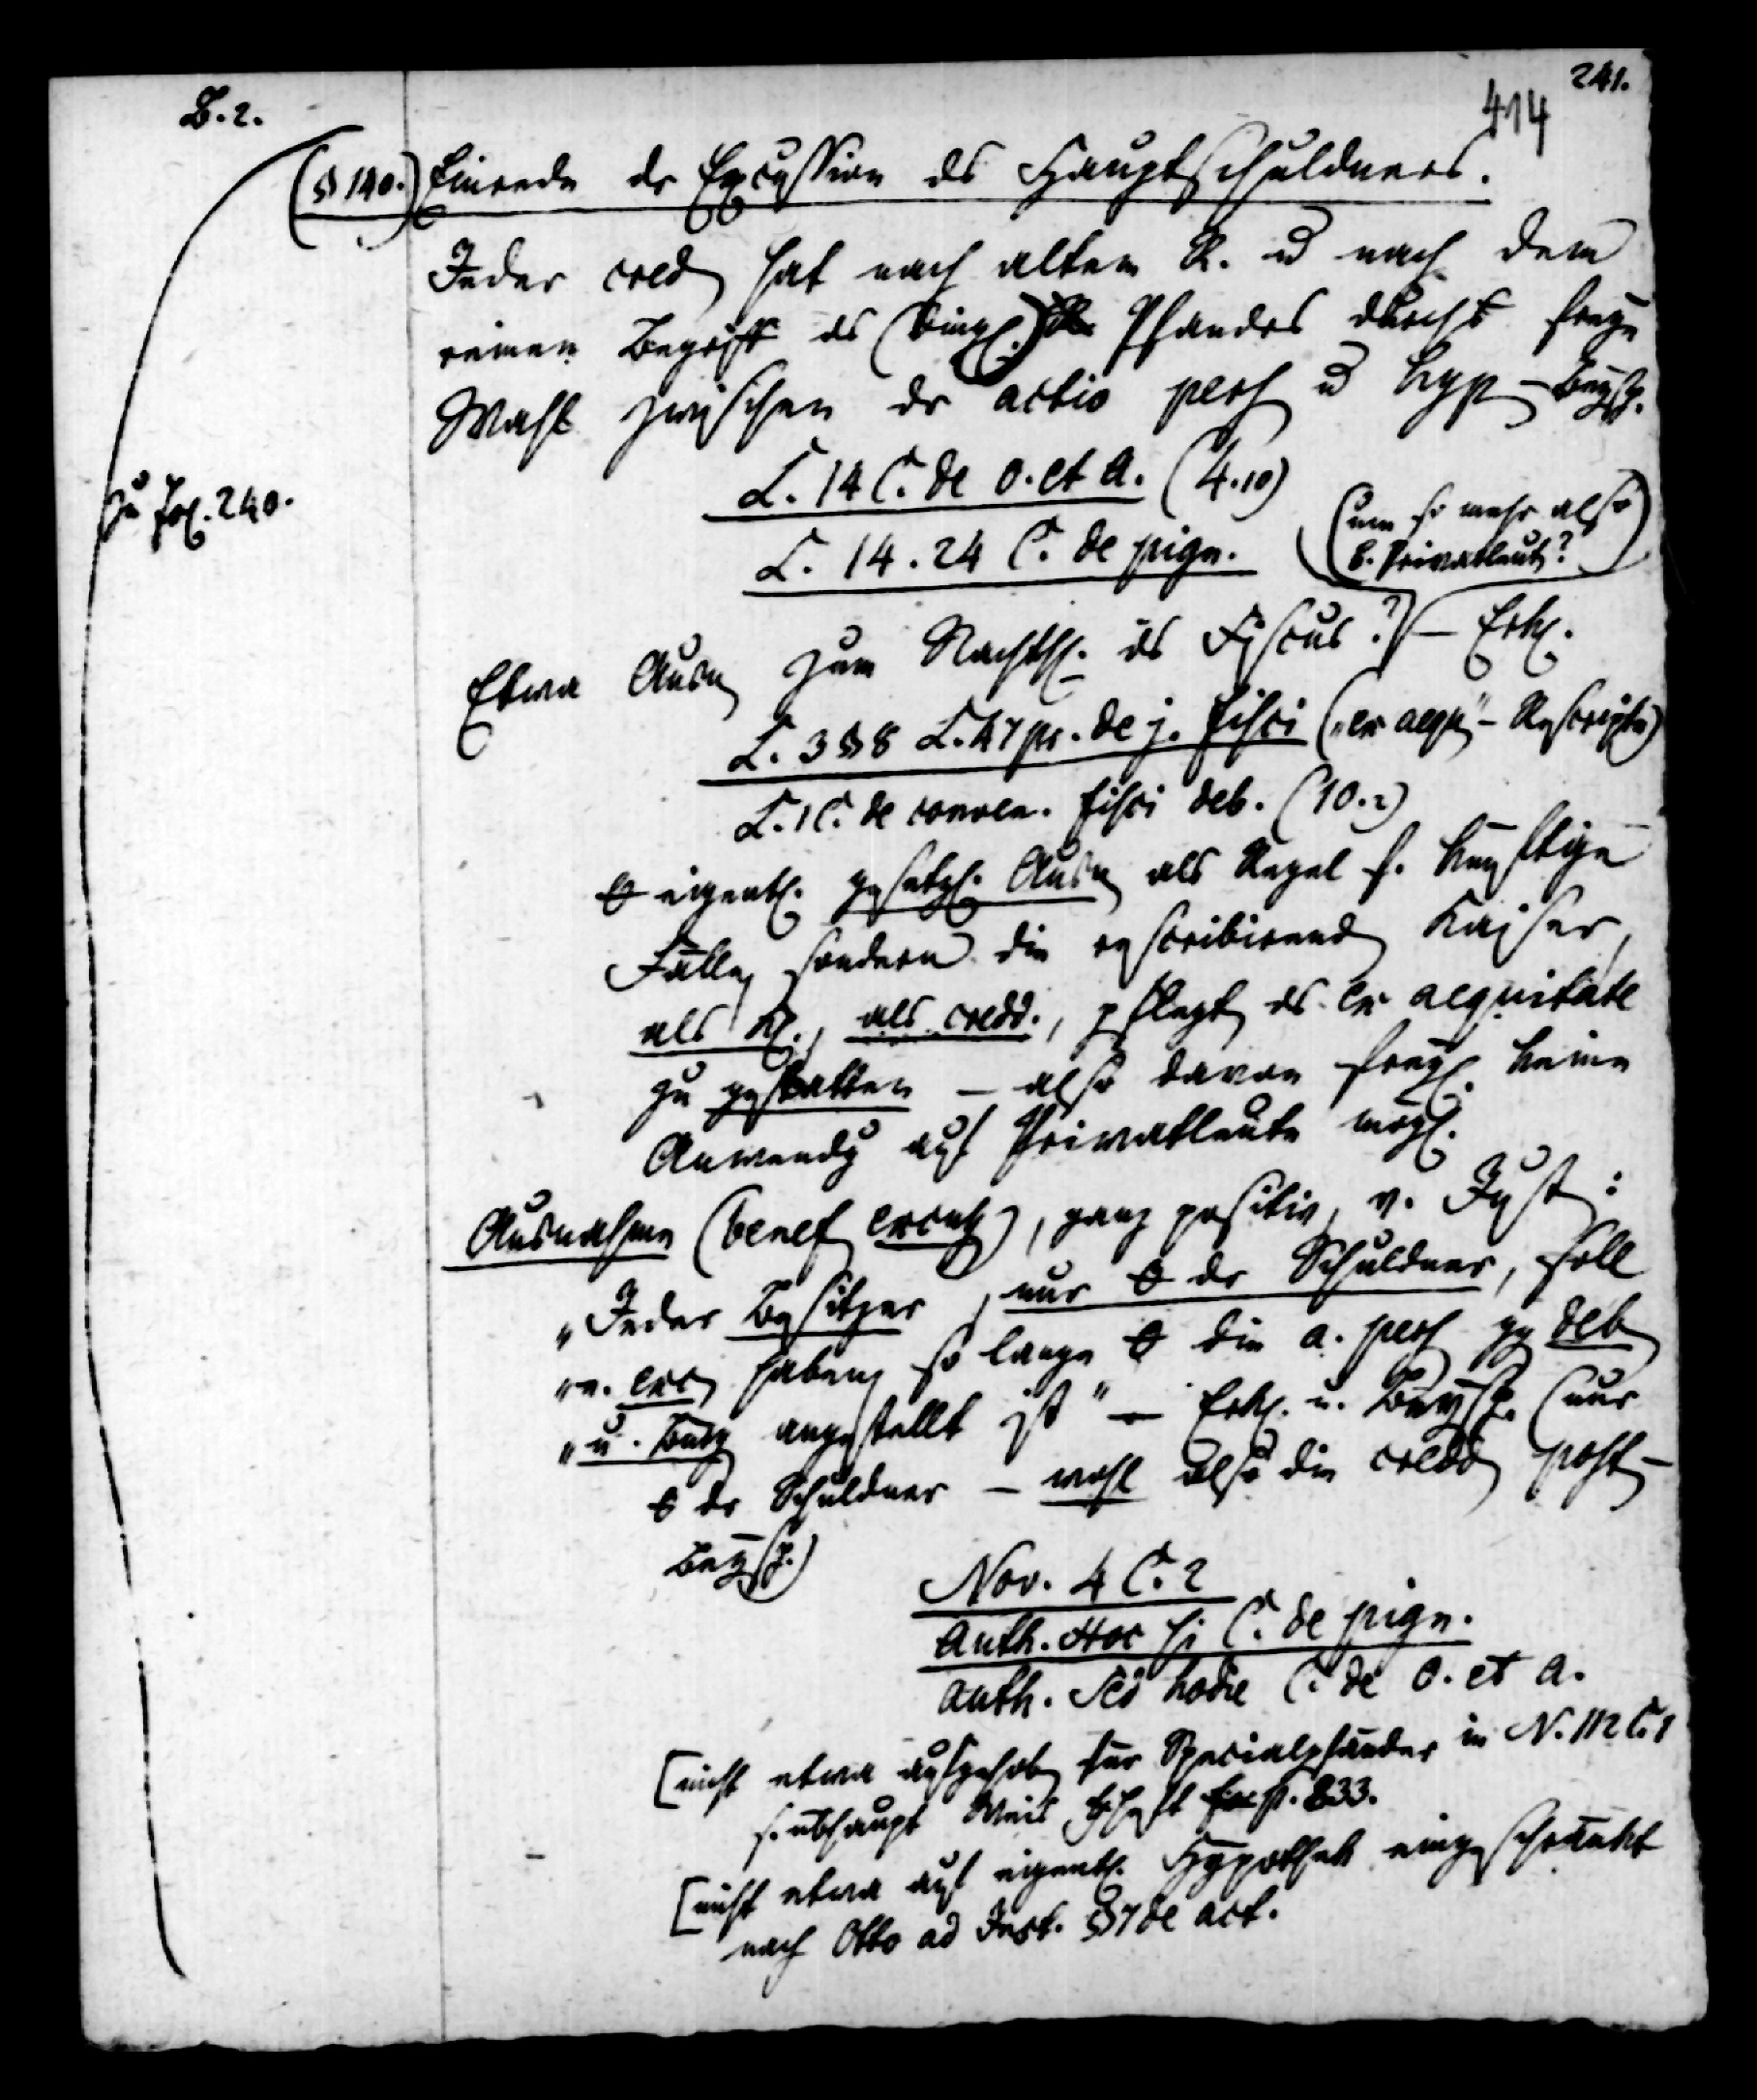 241.
414
B. 2.
(§ 140.) Einrede dr Excussion ds Hauptschuldners.
Jeder cred hat nach altem R. u nach dem
reinen Begriff ds (dingl.) Pfandrs durchs freye
Wahl zwischen dr actio pers u hyp – Beysp.
L. 14 C. de O. et A. (4.10)
zu fol. 240.
L. 14. 24 C. de pign.
(um so mehr also
b. Privatleut?)
Etwa Ausn zum Nachthl. ds Fiscus? – Erkl.
L. 3 § 8 L. 47 pr. de j. fisci („ex aequ“ – Rescripte)
L. 1 C. de conven. fisci deb. (10.2)
θ eigentl. gesetzl. Ausn als Regel f. künftige
Fälle, sondern die rescribirend Kaiser,
als Kl., als credd., pflegt ds ex aequitate
zu gestatten – also davon freyl. keine
Anwendg auf Privatleute mögl.
Ausnahme (benef excuss), ganz positiv, v. Just:
„Jeder Besitzer, nur θ dr Schuldner, soll
„e. exc haben, so lange θ die a. pers gg deb
„u. Bürg angestellt ist“ – Erkl. u. Beysp. (nur
θ dr Schuldner – wohl also die credd post –
Beysp.)
Nov. 4 C. 2
Auth. Hoc si C. de pign.
Auth. Sed hodie C. de O. et A.
[nicht etwa aufgehob für Specialpfänder in N. 112 C. 1
s. übhaupt Weis p. 233.
[nicht etwa auf eigentl. Hypothek eingeschränkt
nach Otto ad Inst. § 7 de act.